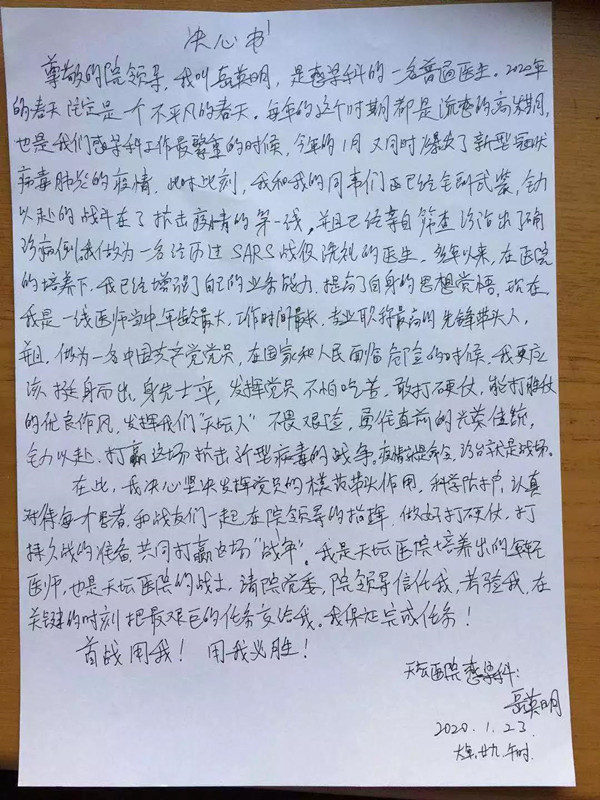 决心书
尊敬的院领导，我叫岳英明，是感染科的一名普通医生。2020年
的春天注定是一个不平凡的春天。每年的这个时期都是流感的高发期，
也是我们感染科工作最繁重的时候，今年的1月又同时爆发了新型冠状
病毒肺炎的疫情。此时此刻，我和我的同事们正已经全副武装，全力
以赴的战斗在了抗击疫情的第一线，并且已经亲自筛查诊治出了确
诊病例。我做为一名经历过SARS战役洗礼的医生，多年以来，在医院
的培养下，我已经增强了自己的业务能力，提高了自身的思想觉悟，现在，
我是一线医师当中，年龄最大，工作时间最长，专业职称最高的先锋带头人，
并且，做为一名中国共产党党员，在国家和人民面临危险的时候，我更应
该挺身而出，身先士卒，发挥党员不怕吃苦，敢打硬仗，能打胜仗
的优良作风，发挥我们"天坛人"不畏艰险，勇往直前的光荣传统，
全力以赴，打赢这场抗击新型病毒的战争。疫情就是命令，诊台就是战场。
在此，我决心坚决发挥党员的模范带头作用，科学防护，认真
对待每一个患者，和战友们一起，在院领导的指挥，做好打硬仗，打
持久战的准备，共同打赢这场"战争"。我是天坛医院培养出的年轻
医师，也是天坛医院的战士，请院党委，院领导信任我，考验我，在
关键的时刻把最艰巨的任务交给我。我保证完成任务！
首战用我！用我必胜！
天坛医院感染科：
岳英明
2020.1.23
大年廿九.午时.